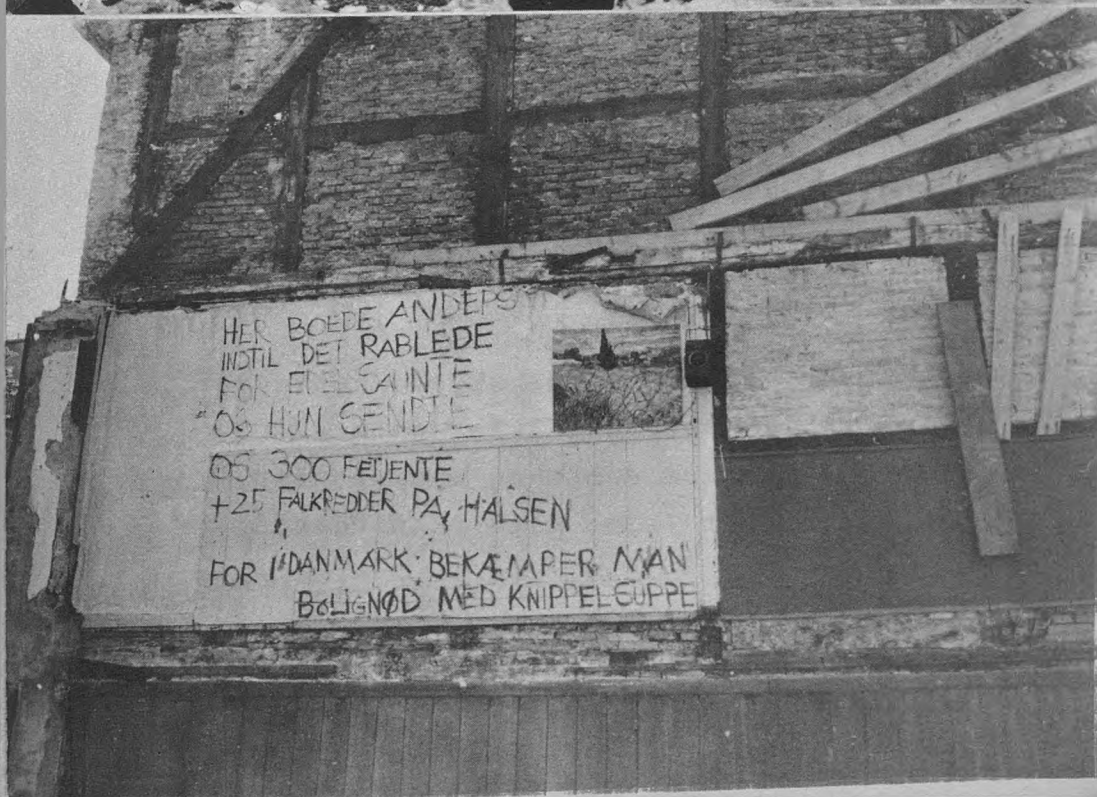 HER BOEDE ANDERS
INDTIL DET RABLEDE
FOR EDEL SAUNTE
OG HUN SENDTE
OS 300 FETJENTE
+25 FALKREDDER PÅ HALSEN
FOR I DANMARK BEKÆMPER MAN
BOLIGNØD MED KNIPPELSUPPE